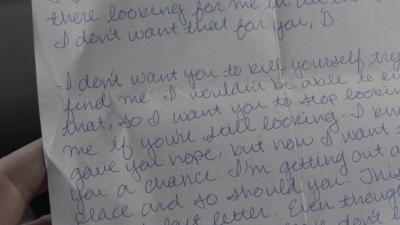 there looking for me in
I don't want that for you, D.
I don't want you to kill yourself try
find me. I wouldn't be able to
that, so I want you to stop lookin
me if you're still looking. I kn
gave you hope, but now I want t
you a chance. I'm getting out o
place and so should you. This
last letter. Even thoug
don't